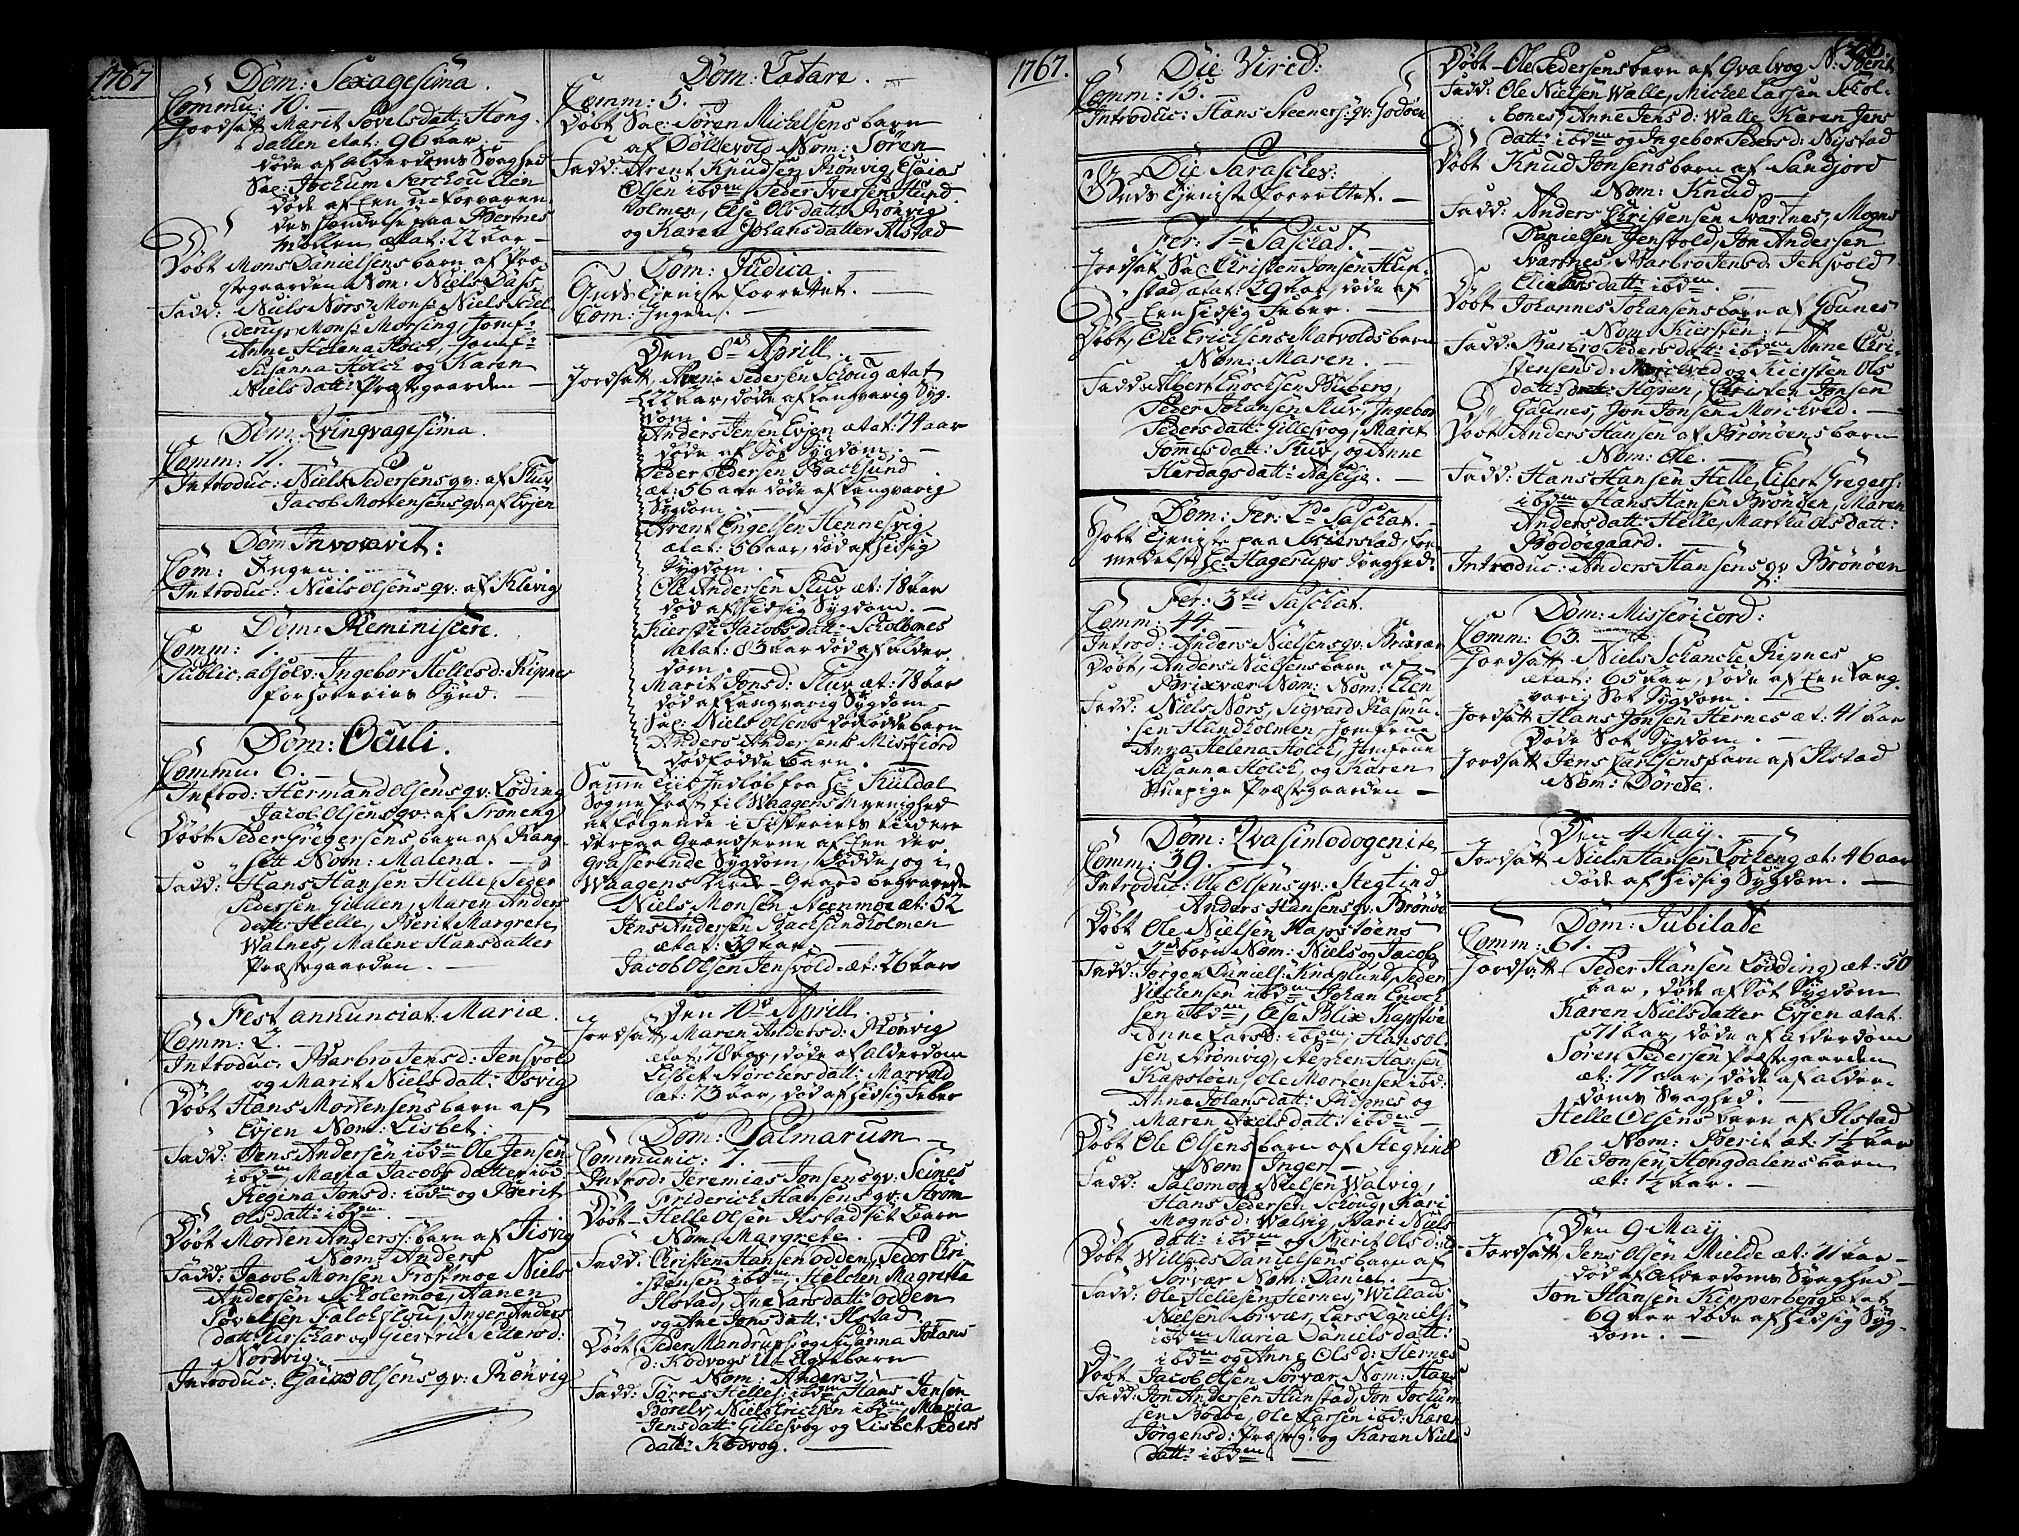 1767
Dom: Sexagesima.
Commu: 10.
Jordsatt Marit Povelsdatt: Hong
dallen etat: 96 aar
døde af alderdoms Svaghed
Sac: Jochum
døde af Een u-forvaren
des hændelse paa Bertnes
Møllen ætat: 22 aar
Døbt Mons Danielsens barn af Præ
stegaarden Nom: Niels Dass
Fadd: Niels Nors Mons: Niels
Mons: Morsing, Jomf:
Anne Helena Holck, Jomf:
Susanna Holck og Karen
Nielsdatt: Præstegaarden
Dom: Qvinqvagesima.
Comm: 11.
Introduc: Niels Pedersens qv: af Skav
Jacob Mortensens qv: af Evjen
Dom Invocavit:
Com: Ingen.
Introduc: Niels Olsens qv: af Klevig
Dom: Reminiscere.
Comm: 1.
Public: absolv: Ingebor Hellesd: Ripnes
for horeries Synd.
Dom: Oculi.
Commu: 6.
Introd: Herman Olsens qv: Løding
Jacob Olsens qv: af
Døbt Peder Gregersens barn af
Nom: Malena.
Fadd: Hans Hansen Helle, Peder
Pedersen Gillen, Maren Anders
datt: Helle, Berit Margrete
Walnes, Malene Hansdatter
Præstegaarden.
Fest annunciat: Mariæ.
Comm: 2.
Introduc: Barbro Jensd: Jensvold
og Marit Nielsdatt: Tsvig
Døbt Hans Mortensens barn af
Evjen Nom: Lisbet:
Fadd: Jens Andersen ibdm Ole Jensen
ibdm, Maria Jacobs datter ibd
Regina Jonsd: ibdm og Berit
Olsdatt: ibdm
Døbt Morten Anders: barn af Tisvig
Nom: Anders
Fadd: Jacob Monsen Frostmoe Niels
Andersen
Povelsen Inger Anders
datt: og Giertru Pedersd:
Nordvig
Introduc: Esaias Olsens qv: Rønvig
Dom: Lætare.
Comm: 5.
Døbt Sac: Søren Michelsens barn
af Døllevold Nom: Søren
Fadd: Arent Knudsen Rønvig, Esaias
Olsen ibdm Peder Iversen Hund
holmen, Else Olsdatt: Rønvig
og Karen Johansdatter Alstad
Dom: Judica.
Guds tieniste forrettet.
Com: Ingen.
Den 8de Aprill.
Jordsatt, Pedersen Schoug ætat
22 aar, døde af langvarig Syg
dom.
Anders Jensen Evjen ætat: 74 aar
døde af Sot Sygdom.
Peder Pedersen Backsund
æt: 56 aar døde af langvarig
Sygdom.
Arent Engelsen Hennesvig
ætat: 56 aar, død af hidsig
Sygdom.
Ole Andersen Skav æt: 18 aar
død af hidsig Sygdom.
Kierste Jacobsdatt: Skolbones
ætat: 83 aar død af alder
dom.
Marit Jonsd: Skav æt: 78 aar
død af langvarig Sygdom
Sac: Niels Olsens dødfødde barn
Anders Andersens Misfjord
dødfødde barn.
Samme tiid Indløb fra Hr: Ruldal
Sogne Præst til Waagens Menighed
at følgende i Fiskeriets tiider
derpaa Grændserne af Een der
grasserende Sygdom, døde, og i
Waagens Kirke-Gaard begravede
Niels Monsen Steenmoe æt: 52
Jens Andersen Backsundholmen
ætat: 39 aar
Jacob Olsen Jensvold æt: 26 aar
Den 10de Aprill.
Jordsatt, Maren Andersd: Rønvig
ætat: 78 aar, døde af alderdom
Lisbet Størchersdatt: Marvold
æt: 73 aar, død af hidsig Feber
Dom: Palmarum
Communic: 7.
Introd: Jeremias Jonsens qv: Seines
Friderich Hansens qv: Strøm
Døbt Helle Olsen Ilstad sit barn
Nom: Margrete.
Fadd: Christen Hansen Odden, Peder Chri
stensen ibdm, Helchen Magretta
Ilstad, Ane Larsdatt: Odden
og Ane Jonsdatt: Ilstad.
Døbt Peder Mandrups og Susanna Johans
d: Kodvogs U-Egte barn
Nom: Anders
Fadd: Torres Helles: ibdm Hans Jensen
Børelv, Niels Erichsen ibdm, Maria
Jensdatt: Gillesvog og Lisbet Peders
datt: Kodvog.
1767.
Die Virid:
Comm: 15.
Introduc: Hans Steeners: qv: Godøen
Die Parasckev:
Guds tieniste forrettet.
Fer: 1te Paschat.
Jordsat Sac: Christen Jonsen Hun
stad ætat: 29 aar, døde af
Een hidsig Feber.
Døbt, Ole Erichsens Marvolds barn
Nom: Maren
Fadd: Albert Enochsen Buberg,
Peder Johansen Skav, Ingebor
Pedersdatt: Gillesvog, Marit
Tommesdatt: Skav, og Anne
Hardagsdatt: Naselje.
Dom: Fer: 2do Paschat.
Holt tieniste paa Skierstad, for
medelst Hr: Hagerups Svaghed:
Fer: 3tii Paschat.
Comm: 44.
Introd: Anders Nielsens qv: Brixvær
Døbt, Anders Nielsens barn af
Brixvær Nom: Nom: Elen
Fadd: Niels Nors, Sigvard Rasmu
sen Hundholmen, Jomfrue
Anna Helena Holck, Jomfrue
Susanna Holck, og Karen
Præstegaarden
Dom: Qvasimodogenite,
Comm: 39.
Introduc: Ole Olsens qv: Stegtind
Anders Hansens qv: Brønøe
Døbt Ole Nielsen Kapstøens
2de børn Nom: Niels og Jacob
Fadd: Jørgen Daniels: Knaplund Peder
Vilchensen ibdm Johan Enoch
sen ibdm, Else Blix Kapstøe
Anne Larsd: ibdm, Hans Ol
sen, Strømvig, Stephen Hansen
Kapstøen, Ole Mortensen ibd:
Anne Johansdatt: Skipnes og
Maren Nielsdatt: ibdm
Døbt Ole Olsens barn af Stegtind
Nom: Inger
Fadd: Salomon Nielsen Walvig,
Hans Pedersen Schoug, Kari
Mognsd: Walvig, Kari Niels
datt: ibdm og Berit Olsd:
Døbt Willads Danielsens barn af
Sørvær Nom: Daniel.
Fadd: Ole Hellesen Hernes, Willads
Nielsen Sørvær, Lars Daniels:
ibdm Maria Danielsdatt:
ibdm og Anne Olsd: Hernes
Døbt Jacob Olsen Sørvær Nom: Hans
Fadd: Jon Andersen Hunstad, Jon Jochum
sen Bodøe, Ole Larsen ibd: Karen
Jørgensd: Præsteg: og Karen Niels
datt: ibdm
Døbt Ole Pedersens barn af Qvalvog N: Berit
Fadd: Ole Nielsen Walle, Michel Larsen Skol
bones, Anne Jensd: Walle Karen Jens
datt: ibdm og Ingebor Pedersd: Nystad
Døbt Knud Jonsens barn af Sandjord
Nom: Knud
Fadd: Anders Christensen Svartnes, Mogns
Danielsen Jensvold, Jon Andersen
Svartnes, Barbro Jensd: Jensvold
datt: ibdm.
Døbt Johannes Johansens barn af Gounes
Nom: Kiersten.
Fadd: Barbro Pedersdatt: ibdm Anne Chri
stensensd: Mørckved og Kiersten Ols
datt: Hopen, Christen Jonsen
Gaunes, Jon Jonsen Morckved.
Døbt Anders Hansen af Brønøens barn
Nom: Ole.
Fadd: Hans Hansen Helle, Eilert Gregers:
ibdm Hans Hansen Brønøen, Maren
Andersdatt: Helle, Martha Olsdatt:
Bodøegaard.
Introduc: Anders Hansens qv: Brønøen
Dom: Missericord:
Comm: 63.
Jordsatt Niels Schancke Ripnes
ætat: 65 aar, døde af Een lang
varig Sot Sygdom.
Jordsatt Hans Jonsen Hernes æt: 41 aar
Døde Sot Sygdom.
Jordsatt Jens Carlsens barn af Ilstad
Nom: Dorete.
Den 4 May.
Jordsatt Niels Hansen Løcheng æt: 46 aar
døde af hidsig Sygdom.
Dom: Jubilate
Comm: 61.
Jordsatt Peder Hansen Lødding æt: 50
aar, døde af Sot Sygdom
Karen Nielsdatter Evjen ætat:
71 aar, døde af alderdom
Søren Pedersen Præstegaarden
æt: 77 aar, døde af alder-
doms Svaghed.
Helle Olsens barn af Ilstad
Nom: Berit æt: 1½ aar
Ole Jonsen, Hongdalens barn
æt: ½ aar.
Den 9 May
Jordsatt Jens Olsen Mielde æt: 71 aar
død af Alderdoms Svaghed
Jon Hansen Kipperberg ætat
69 aar døde af hidsig Syg
dom.